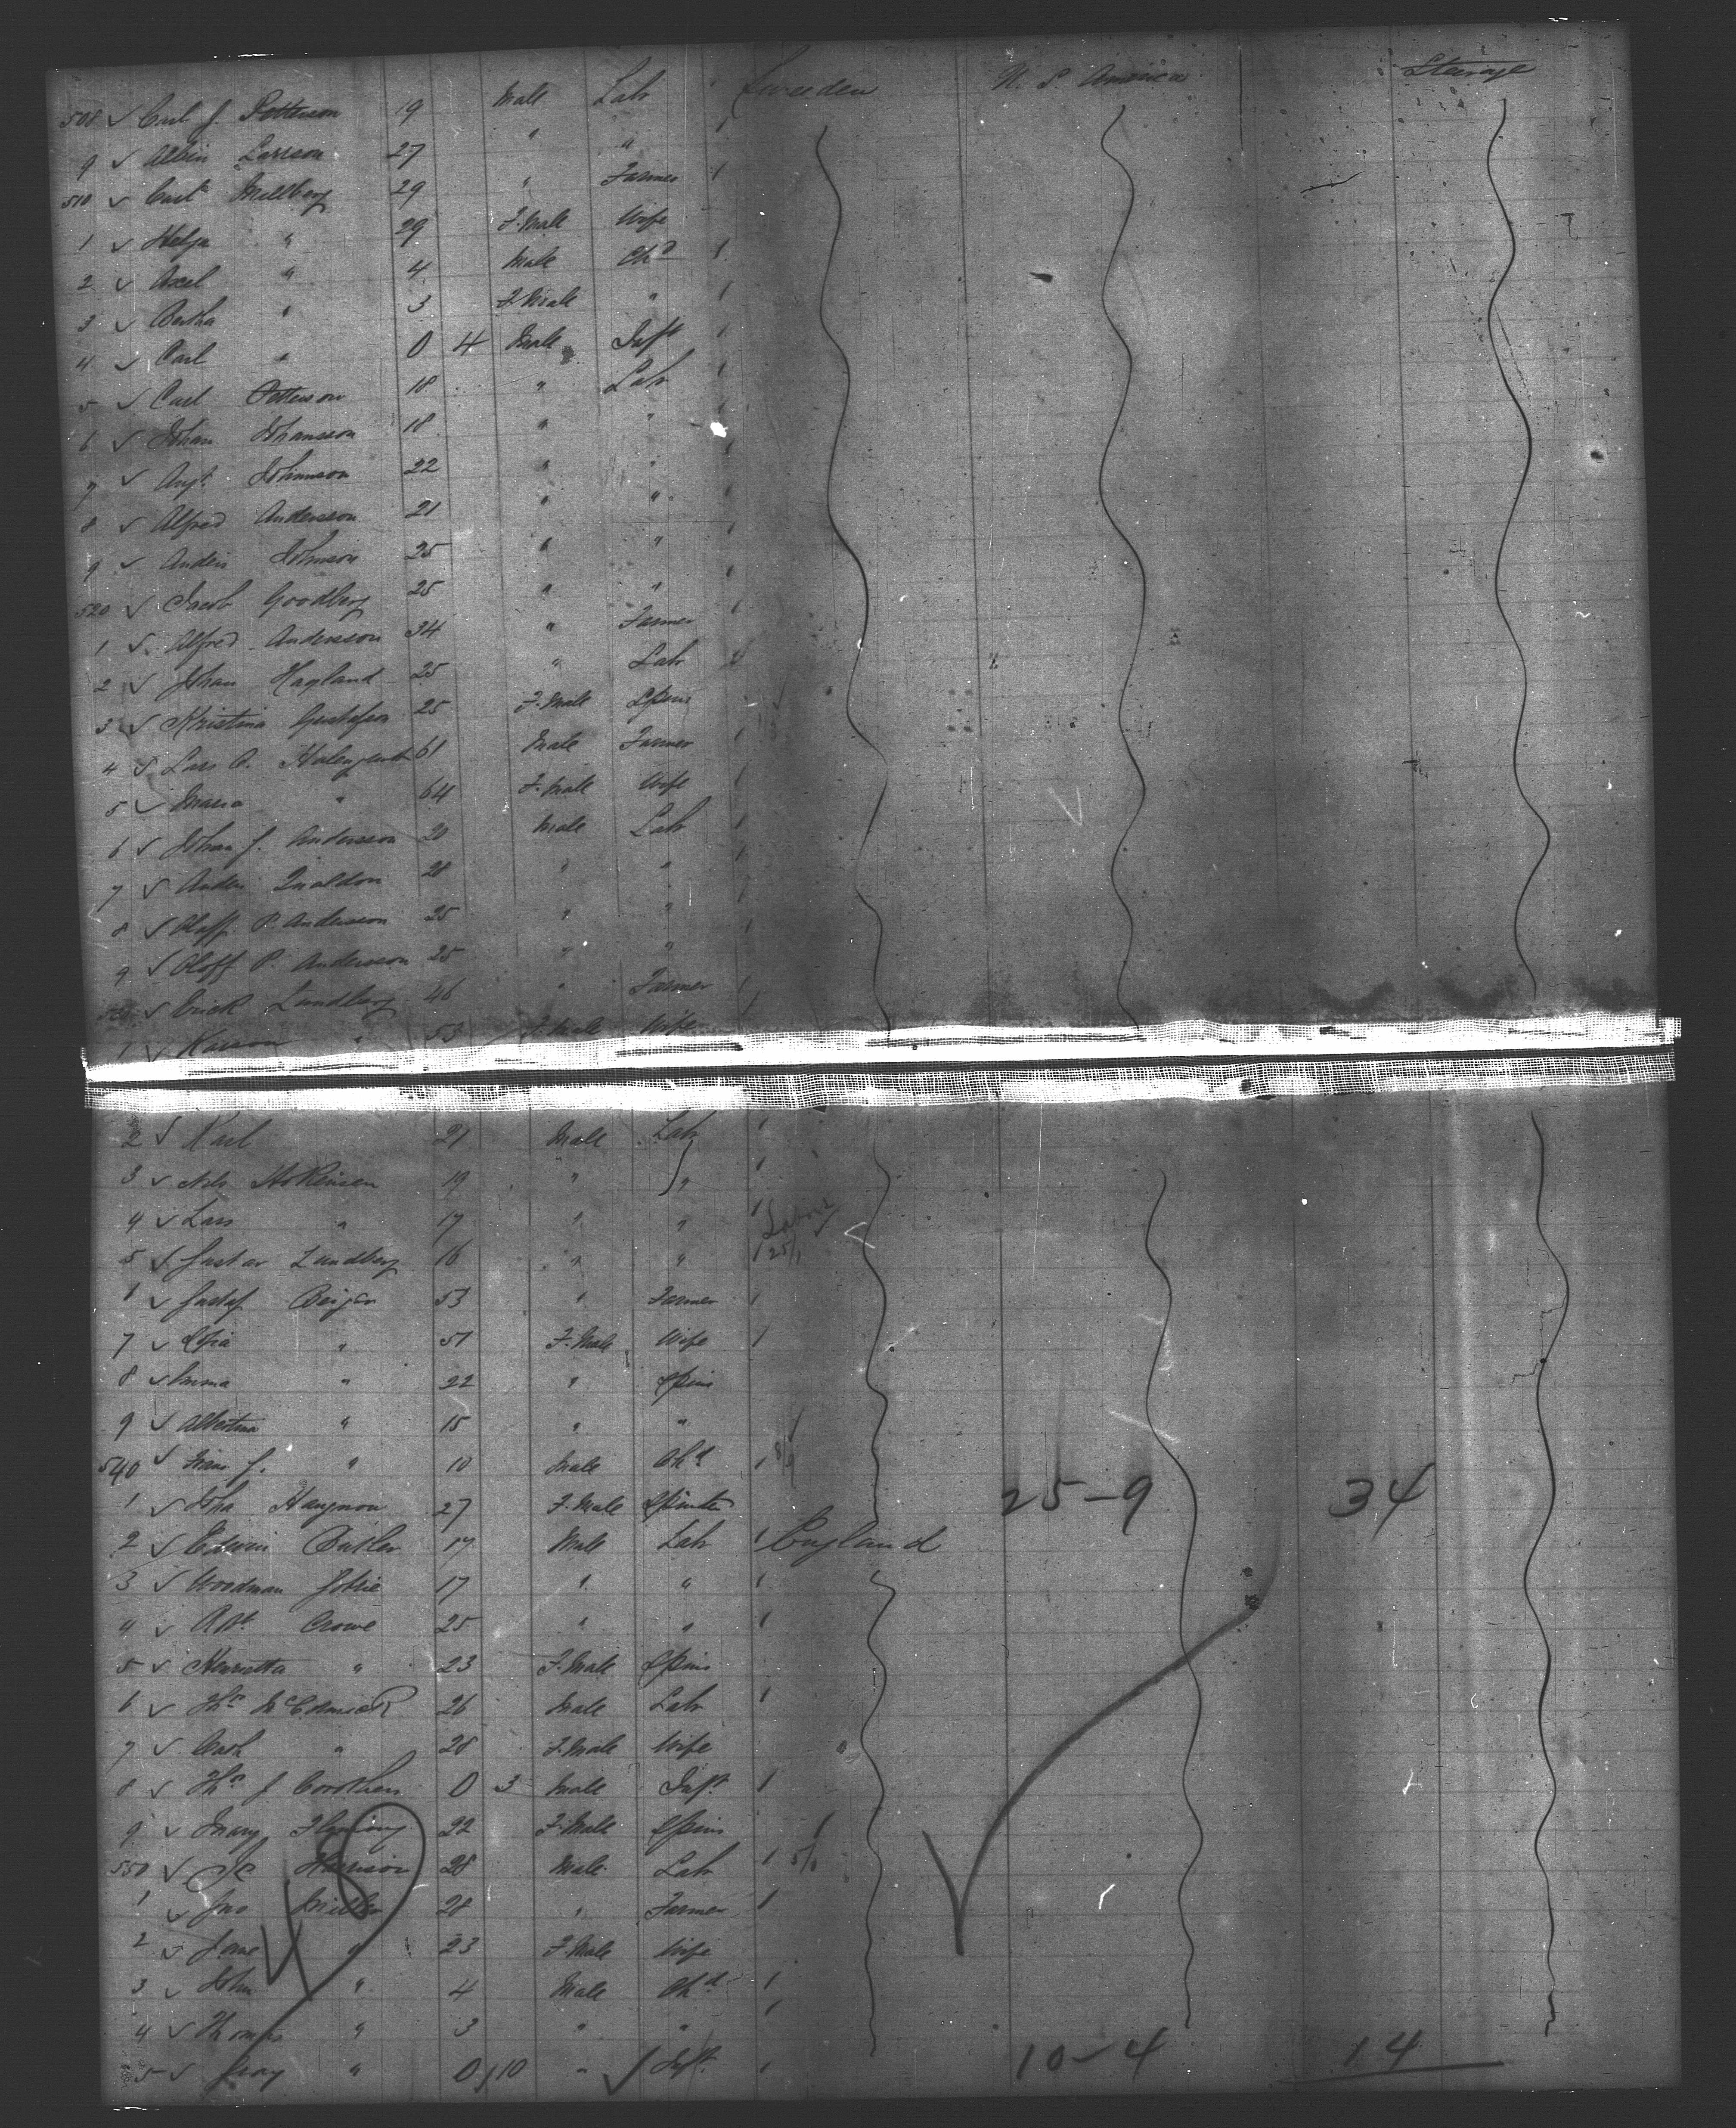 508 ✓ Carl J. Petterson 19 Male Labr 1 Sweeden U. S. America Steerage
9 ✓ Albin Larsson 27 " "
510 ✓ Carl Millberg 29 " Farmer 1
1 ✓ Helga " 29 F.Male Wife
2 ✓ Axel " 4 Male Chd 1
3 ✓ Bertha " 3 F.Male "
4 ✓ Carl " 0 4 Male Inft 1
5 ✓ Carl Petterson 18 " Labr 1
6 ✓ Johan Johansson 18 " "
7 ✓ Augt Johnnson 22 " "
8 ✓ Alfred Andersson 21 " "
9 ✓ Anders Johnson 25 " "
520 ✓ Jacob Goodberg 25 " " 1
1 ✓ Alfred Andersson 34 " Farmer 1
2 ✓ Johan Hagland 25 " Labr 1
3 ✓ Kristina Gustafson 25 F.Male Spins
4 ✓ Lars A. 61 Male Farmer 1
5 ✓ Maria " 64 F.Male Wife 1
6 ✓ Johan J. Andersson 20 Male Labr 1
7 ✓ Anders 28 " "
8 ✓ Oloff P. Andersson 25 " " 1
9 ✓ Oloff P. Andersson 25 " "
530 ✓ Erick Lundberg 46 " Farmer 1
1 ✓ " 53 F.Male Wife
2 ✓ Karl 21 Male Labr 1
3 ✓ Nils Hokensen 19 " " 1
4 ✓ Lars " 17 " " 1
5 ✓ Gustav Lundberg 16 " " 1 25/1
6 ✓ Gustaf Beijer 53 " Farmer 1
7 ✓ Sofia " 51 F.Male Wife 1
8 ✓ Emma " 22 " Spins
9 ✓ Albertina " 15 " "
540 ✓ Frans J. " 10 Male Chd 1 8/9
1 ✓ Hangnon 27 F.Male Spinster 25-9 34
2 ✓ Edwin Butler 17 Male Labr 1 England
3 ✓ Woodman 17 " " 1
4 ✓ Crowe 25 " " 1
5 ✓ Henrietta " 23 F.Male Spins
6 ✓ Ths McCormick 26 Male Labr 1
7 ✓ Cath " 28 F.Male Wife
8 ✓ Ths J. 0 3 Male Inft 1
9 ✓ Mary Fleming 22 F.Male Spins
550 ✓ Harrison 28 Male Labr 1 5/1
1 ✓ Jno Miller 28 " Farmer 1
2 ✓ Jane " 23 F.Male Wife
3 ✓ John " 4 Male Chd 1
4 ✓ Thomas " 3 " " 1
5 ✓ Gray " 0 10 " Inft 1 10-4 14
48